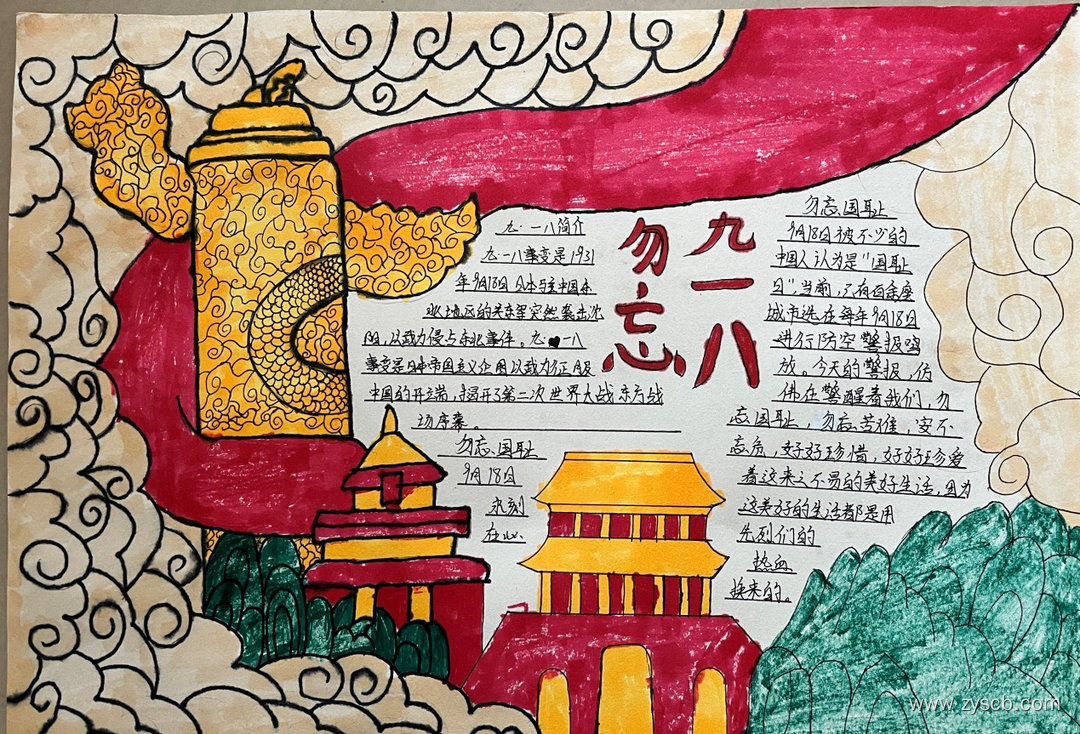 九一八
勿忘
九·一八简介
九一八事变是1931
年9月18日日本驻中国东
北地区的关东军突然袭击沈
阳,以武力侵占东北事件。九一八
事变是日本帝国主义企图以武力征服
中国的开端,揭开了第二次世界大战东方战
场序幕。
勿忘国耻
9月18日
永刻
在心
勿忘国耻
9月18日被不少的
中国人认为是"国耻
日"当前,只有百余座
城市选在每年9月18日
进行防空警报鸣
放。今天的警报,仿
佛在警醒着我们,勿
忘国耻,勿忘苦难,安不
忘危,好好珍惜,好好珍爱
着这来之不易的美好生活,因为
这美好的生活都是用
先烈们的
热血
换来的。
www.zyscb.com